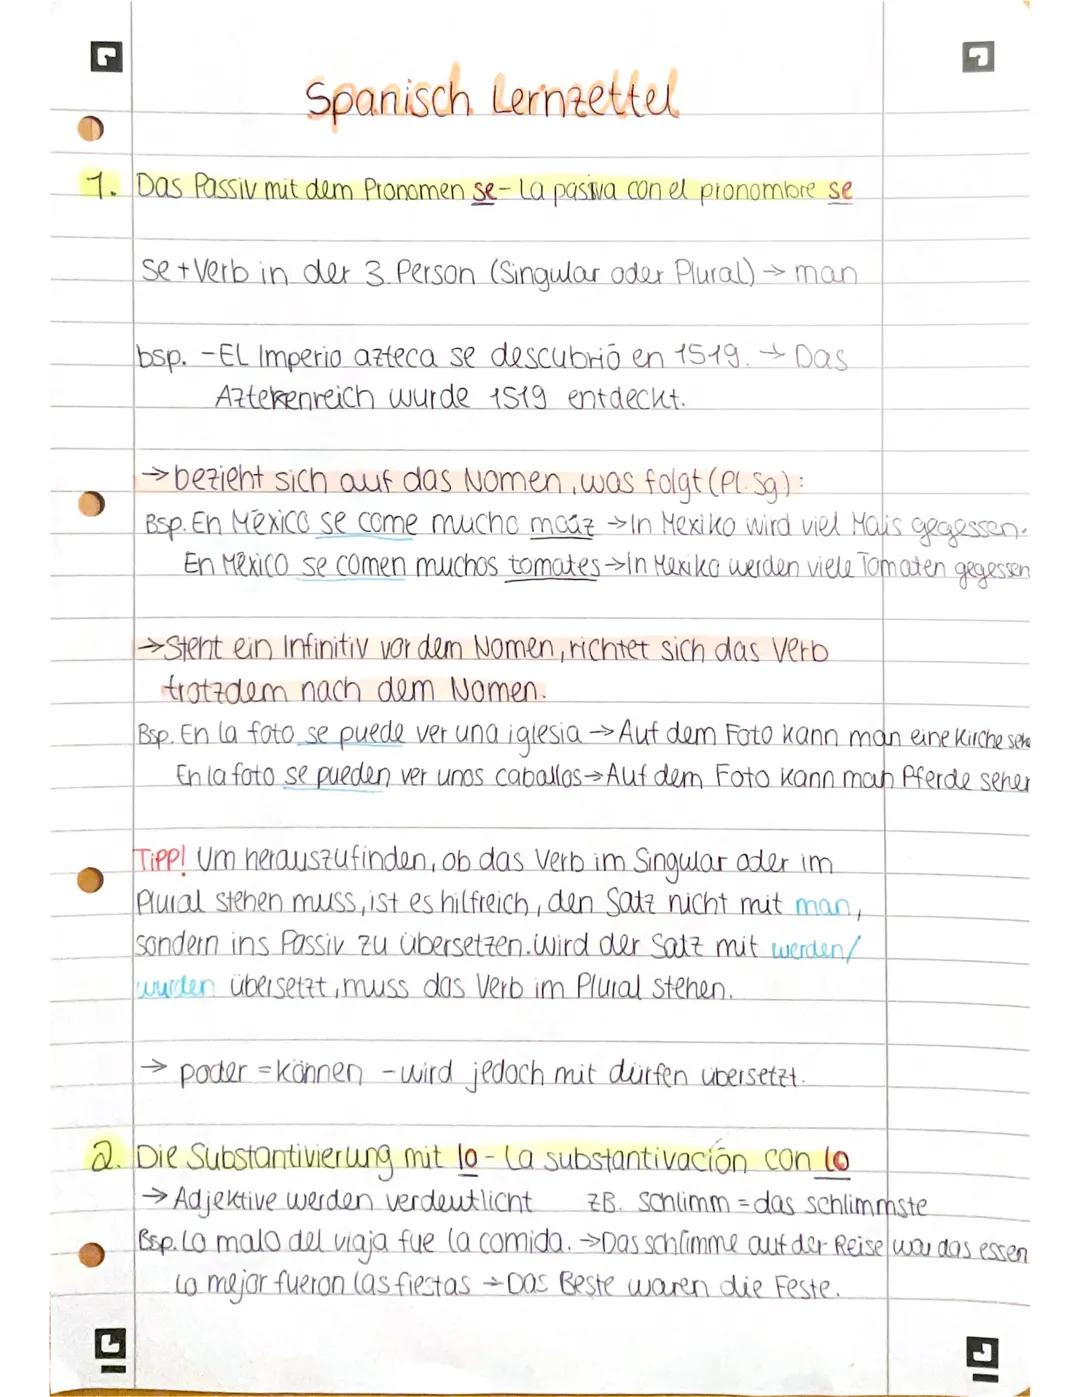 Spanisch Lernzettel
1. Das Passiv mit dem Pronomen se - La pasiva con el pronombre se
se + Verb in der 3. Person (Singular oder Plural) → man
bsp. - EL Imperio azteca se descubrió en 1519. → Das
Aztekenreich wurde 1519 entdeckt.
→ bezieht sich auf das Nomen, was folgt (Pl. Sg):
Bsp. En México se come mucho maíz → In Mexiko wird viel Mais gegessen.
En México se comen muchos tomates → In Mexiko werden viele Tomaten gegessen
→ Steht ein Infinitiv vor dem Nomen, richtet sich das Verb
trotzdem nach dem Nomen.
Bsp. En la foto se puede ver una iglesia → Auf dem Foto kann man eine Kirche sehe
En la foto se pueden ver unos caballos → Auf dem Foto kann man Pferde sehen
Tipp! Um herauszufinden, ob das Verb im Singular oder im
Plural stehen muss, ist es hilfreich, den Satz nicht mit man,
sondern ins Passiv zu übersetzen. Wird der Satz mit werden/
wurden übersetzt, muss das Verb im Plural stehen.
→ poder = können - wird jedoch mit dürfen übersetzt.
2. Die Substantivierung mit lo - La substantivación con lo
→ Adjektive werden verdeutlicht zB. schlimm = das schlimmste
Bsp. Lo malo del viaja fue la comida. → Das schlimme auf der Reise war das essen
Lo mejor fueron las fiestas → Das Beste waren die Feste.